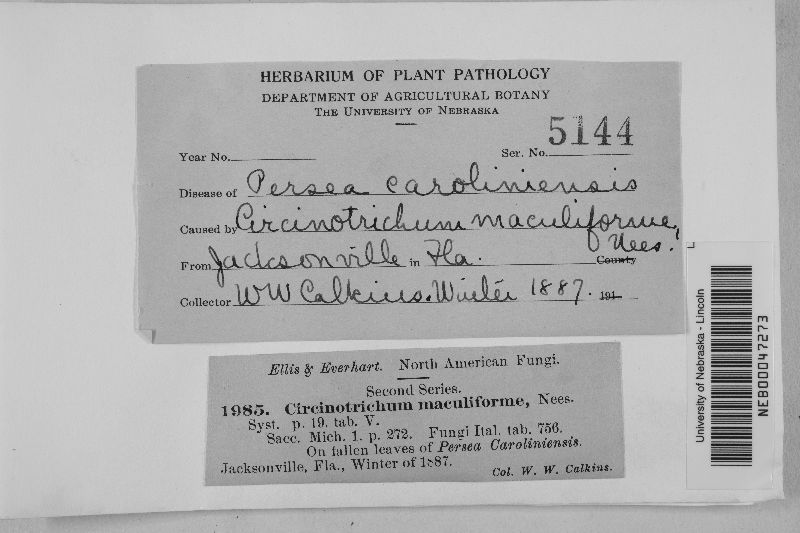 HERBARIUM OF PLANT PATHOLOGY
DEPARTMENT OF AGRICULTURAL BOTANY
THE UNIVERSITY OF NEBRASKA
5144
Year No. Ser. No.
Disease of Persea caroliniensis
Caused by Circinotrichum maculiforme, Nees.
From Jacksonville in Fla. County
Collector W W Calkins. Winter 1887. 191
Ellis & Everhart. North American Fungi.
Second Series.
1985. Circinotrichum maculiforme, Nees.
Syst. p. 19. tab. V.
Sacc. Mich. 1. p. 272. Fungi Ital. tab. 756.
On fallen leaves of Persea Caroliniensis.
Jacksonville, Fla., Winter of 1887.
Col. W. W. Calkins.
University of Nebraska - Lincoln
NEB00047273